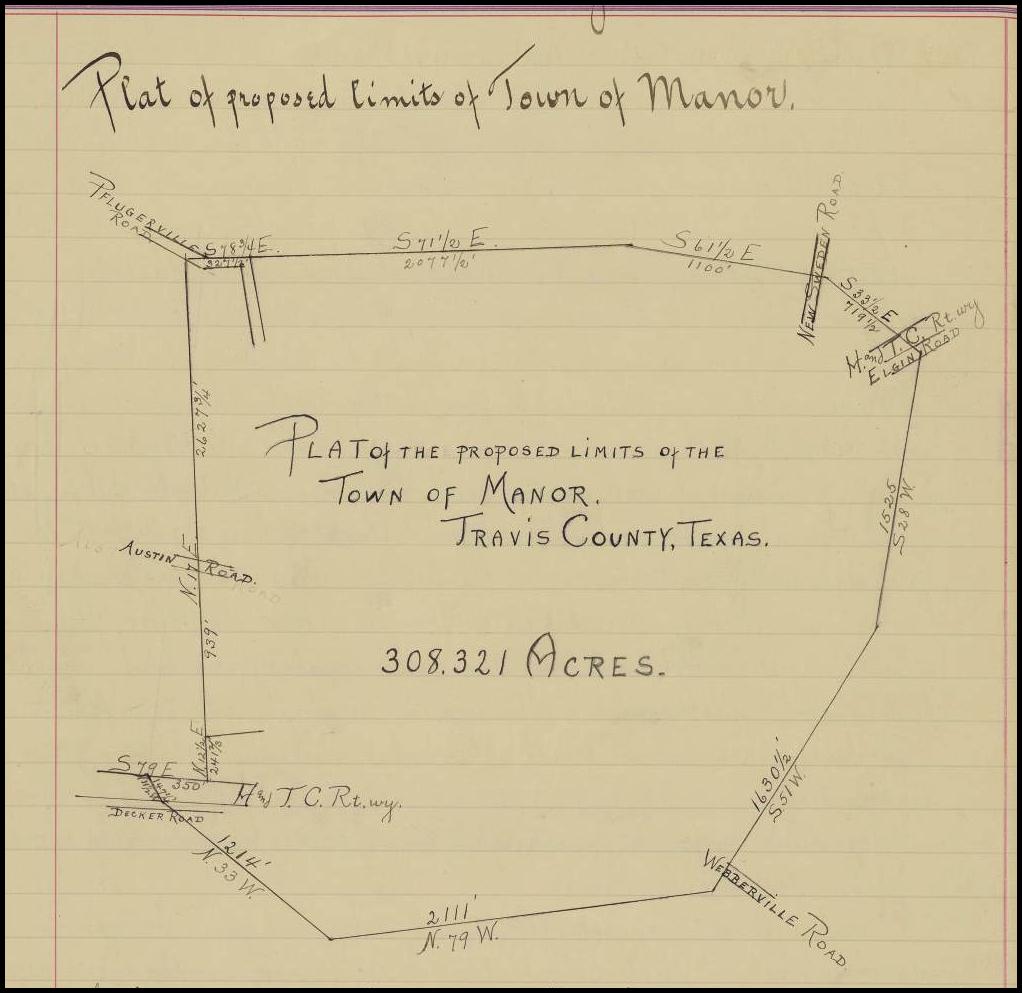 Plat of proposed limits of Town of Manor.
PFLUGERVILLE
ROAD.
S 78 3/4 E.
327 1/2'
S 71 1/2 E.
2077 1/2'
S 61 1/2 E
1100'
NEW SWEDEN ROAD.
S 33 1/2 E
719 1/2
H. and T. C. Rt. wy
ELGIN ROAD
2627 3/4'
PLAT of THE PROPOSED LIMITS of THE
TOWN OF MANOR.
TRAVIS COUNTY, TEXAS.
1525
S 28 W.
AUSTIN ROAD.
N. 17 E.
939'
308.321 ACRES.
N 12 1/2 E
S 79 E
350'
H and T. C. Rt. wy.
DECKER ROAD
1630 1/2'
S 51 W.
1214'
N. 33 W.
WEBBERVILLE ROAD.
2111'
N. 79 W.